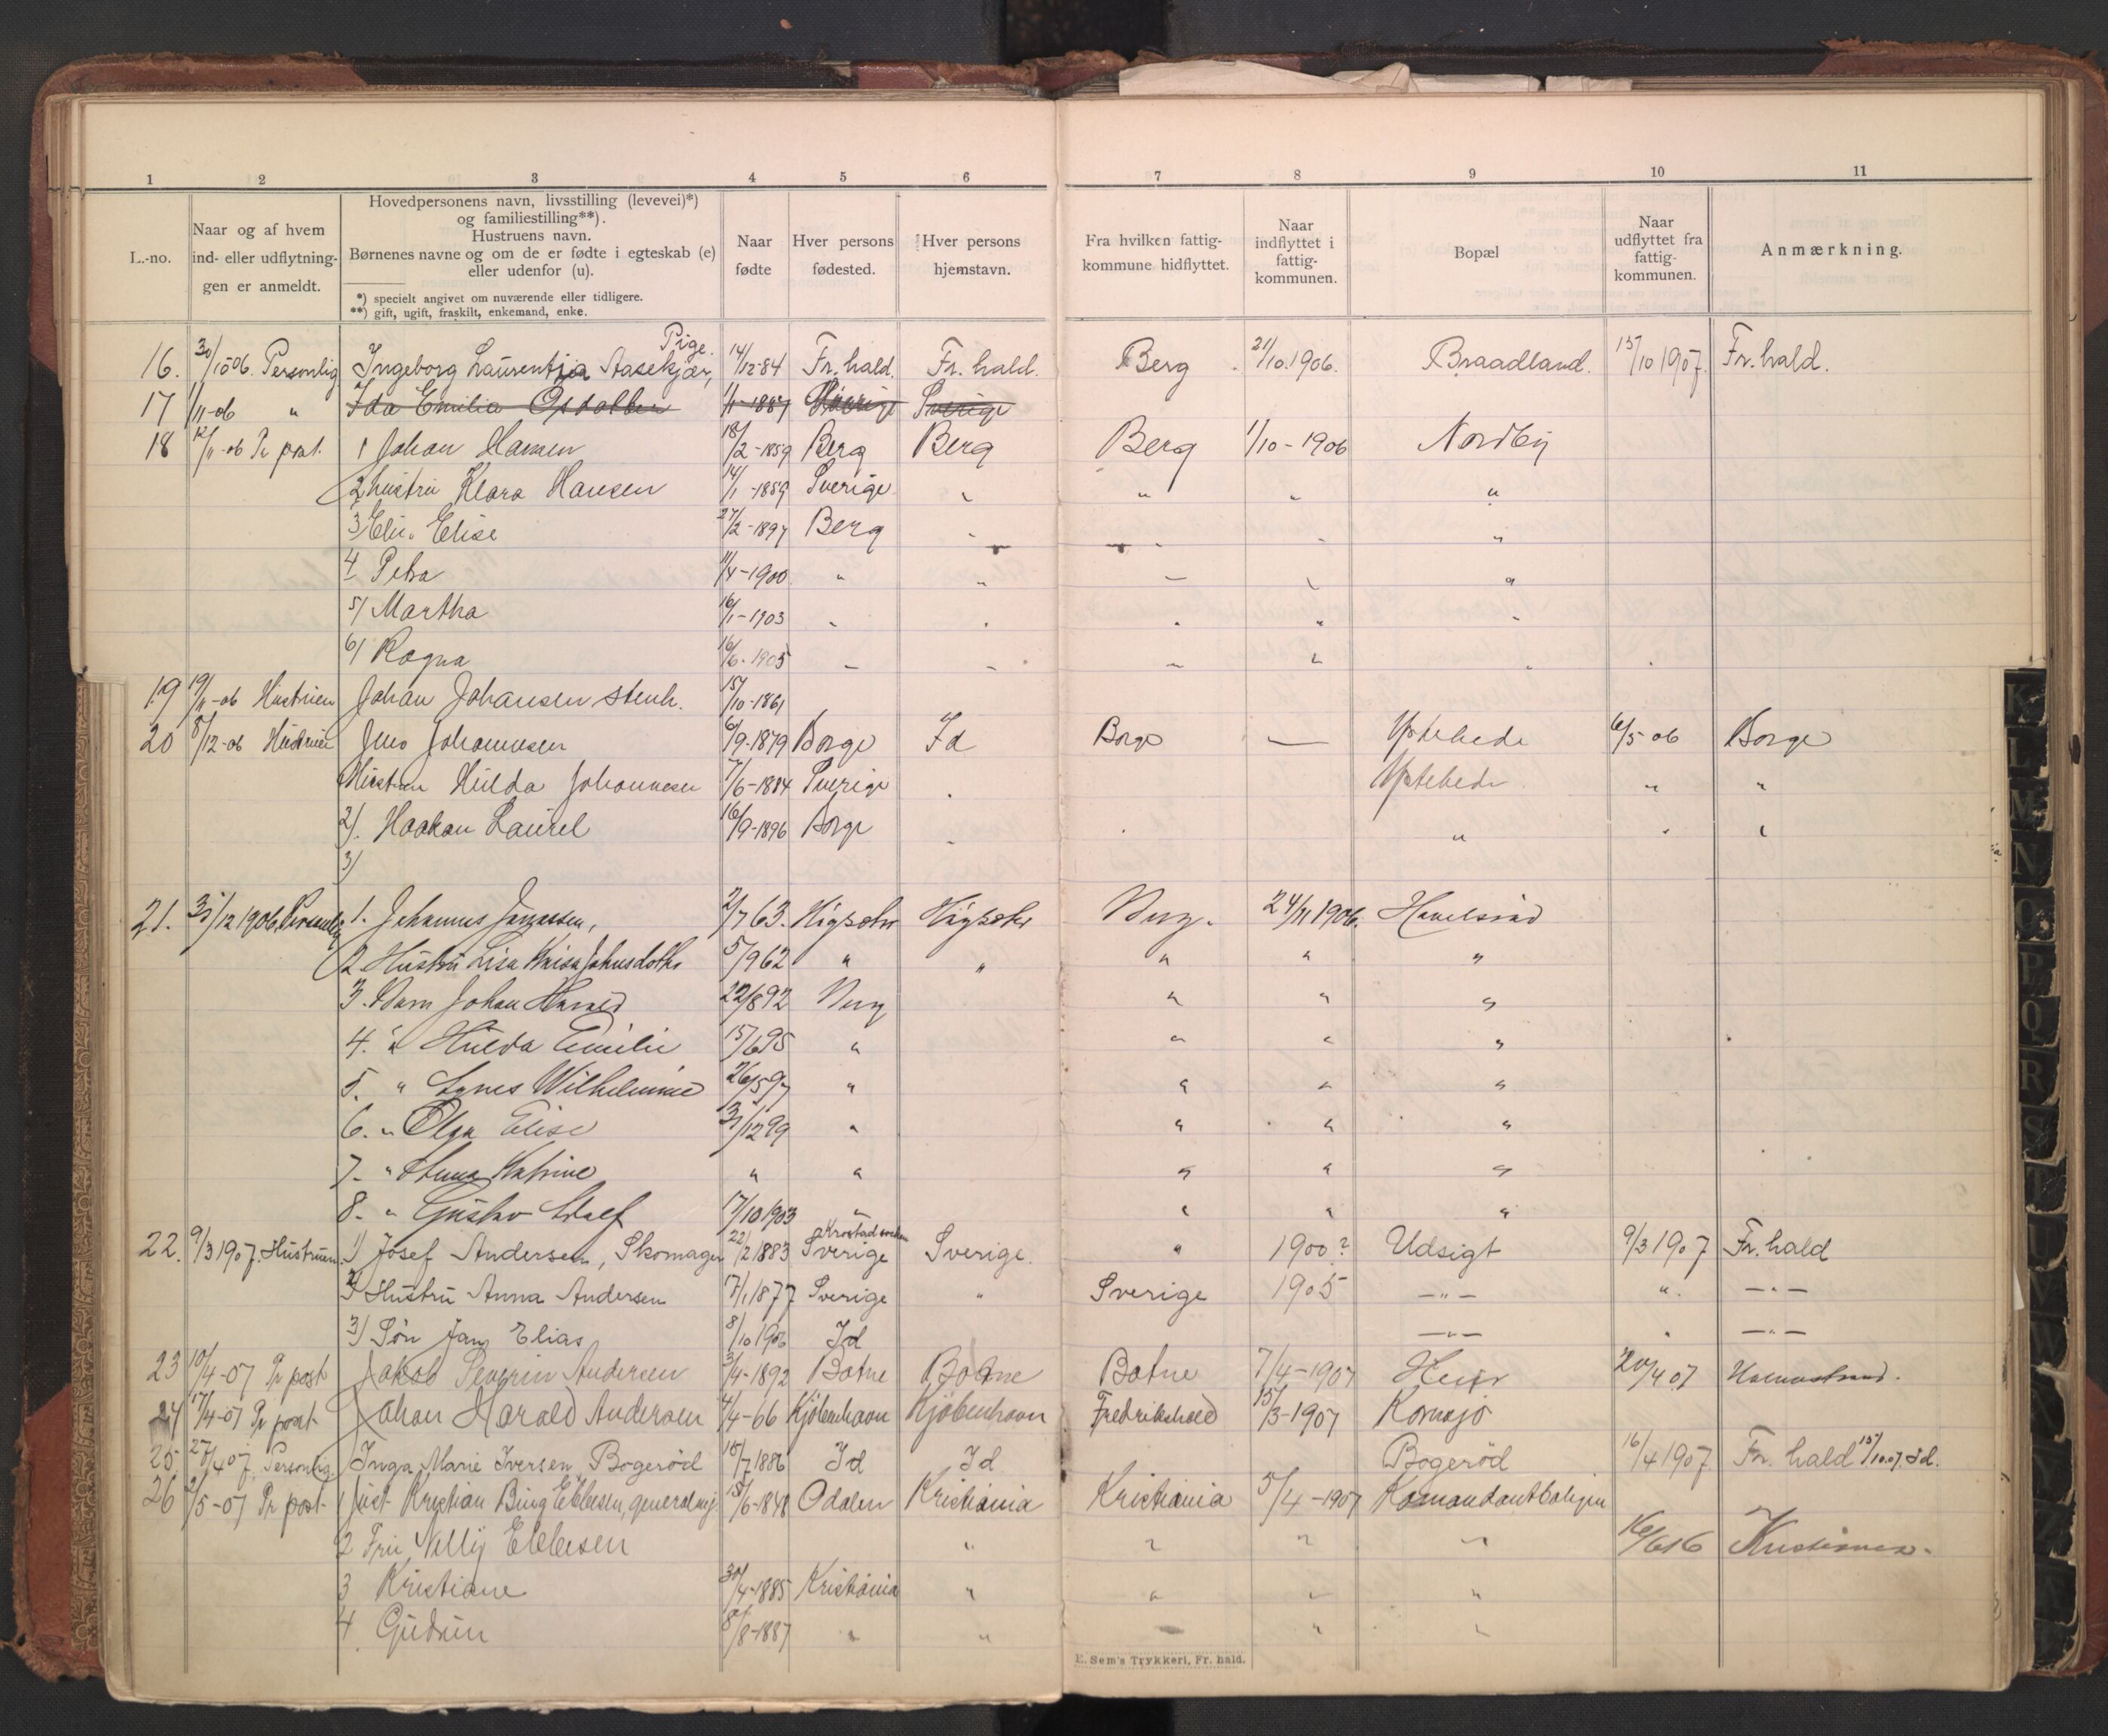 1 2 3 4 5 6 7 8 9 10 11
L.-no.
Naar og af hvem
ind- eller udflytnin-
gen er anmeldt.
Hovedpersonens navn, livsstilling (levevei)*)
og familiestilling**).
Hustruens navn.
Børnenes navne og om de er fødte i egteskab (e)
eller udenfor (u).
*) specielt angivet om nuværende eller tidligere.
**) gift, ugift, fraskilt, enkemand, enke.
Naar
fødte
Hver persons
fødested.
Hver persons
hjemstavn.
Fra hvilken fattig-
kommune hidflyttet.
Naar
indflyttet i
fattig-
kommunen.
Bopæl
Naar
udflyttet fra
fattig-
kommunen.
Anmærkning.
Pige.
16. 30/10 06. Personlig Ingeborg Laurentia Aasekjær, 14/12-84 Fr.hald. Fr. hald. Berg 21/10.1906. Braadland. 15/10 1907. Fr. hald.
17 1/11-06 " Ida Emilia 1/11-1887 Sverige Sverige
18 12/11-06 Pr post. 1 Johan Hansen 18/2-1859 Berg Berg Berg 1/10-1906 Nordby
2 hustru Klara Hansen 14/1-1859 Sverige " " " "
3 Elise 27/2-1897 Berg " " " "
4 Petra 11/4-1900 " " " " "
5/ Martha 16/1-1903 " " " " "
6/ Ragna 16/6-1905 " " " " "
19 19/11-06 Hustruen Johan Johansen stenh. 15/10-1861
20 8/12-06 Hustruen Jens Johannesen 6/9-1879 Borge Id Borge — 6/5 06 Borge
Hustru Hulda Johannesen 7/6-1884 Sverige " " "
2/. Haakon Laurel 16/9-1896 Borge " " " "
3/
21. 31/12 1906, Personlig 1. Johannes Jonassen, 2/7 63. Berg. 24/11 1906.
2 Hustru Lisa Kaisa 5/9 62 " " " " "
3. Barn Johan 22/8 92 Berg " " "
4. " Hulda Emilie 15/6 95 " " " "
5. " Agnes Wilhelmine 26/5 97 " " " "
6. " Olga Elise 31/12 99 " " " "
7. " Anna Katrine " " " " "
8. " Gustav Adolf 17/10 1903 " " " "
22. 9/3 1907. Hustruen. 1) Josef Andersen, Skomager 22/2 1883 Sverige Sverige. " 1900? Udsigt 9/3 1907 Fr. hald
2) Hustru Anna Andersen 17/1 1877 Sverige " Sverige 1905 —"— " —"—
3) Søn Jans Elias 8/10 1906 Id —"— " —"—
23 10/4-07 Pr post Jakob Severin Andersen 3/4-1892 Botne Botne Botne 7/4-1907 20/4 07 Holmestrand.
24 17/4-07 Pr post Johan Harald Andersen 4/4-66 Kjøbenhavn Kjøbenhavn Fredrikshald 15/3-1907 Kornsjø
25. 27/4 07. Personlig. Inga Marie Iversen, Bogerød 15/7 1886 Id Id Bogerød 16/4 1907. Fr. hald 15/10.07. Id.
26 2/5-07 Pr post 1 Just Kristian Bing Ebbesen, generalmj. 15/6-1848 Odalen Kristiania Kristiania 5/4-1907 Komandantboligen
2 Fru Nelly Ebbesen " " " " 16/6 16 Kristiania.
3 Kristiane 30/4-1885 Kristiania " " " "
4 Gudrun 8/8-1887 " " " "
E. Sem's Trykkeri, Fr. hald.
K
L
M
N
O
P
Q
R
S
T
U
V
W